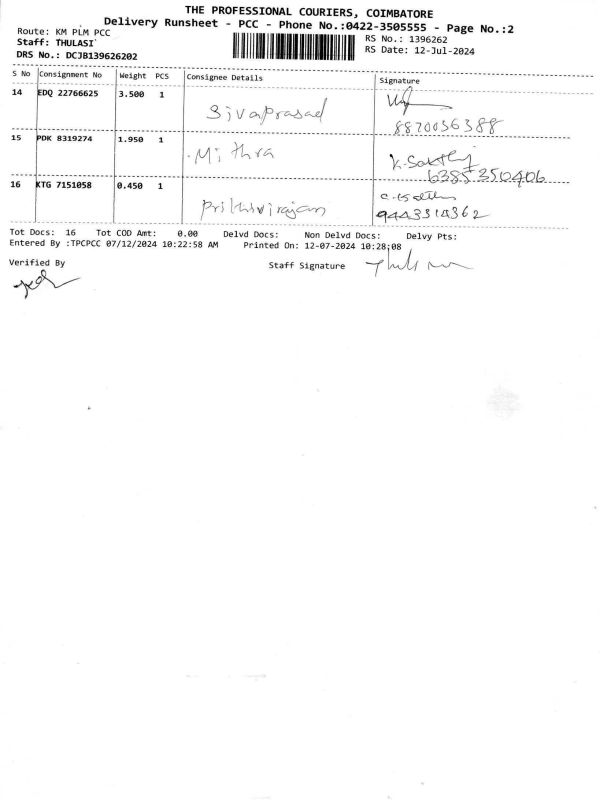 THE PROFESSIONAL COURIERS, COIMBATORE
Delivery Runsheet - PCC - Phone No.:0422-3505555 - Page No.:2
Route: KM PLM PCC
RS No.: 1396262
Staff: THULASI
RS Date: 12-Jul-2024
DRS No.: DCJB139626202
S No Consignment No Weight PCS Consignee Details Signature
14 EDQ 22766625 3.500 1
Sivaprasad
8870056388
15 PDK 8319274 1.950 1
Mithra
K. Sakthi
6385350406
16 KTG 7151058 0.450 1
Prithivirajan
9443314362
Tot Docs: 16 Tot COD Amt: 0.00 Delvd Docs: Non Delvd Docs: Delvy Pts:
Entered By :TPCPCC 07/12/2024 10:22:58 AM Printed On: 12-07-2024 10:28:08
Verified By
Staff Signature